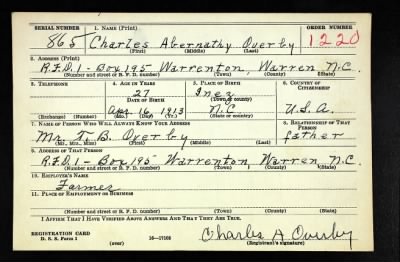 SERIAL NUMBER 1. NAME (Print) ORDER NUMBER
865 Charles Abernathy Overby 1220
(First) (Middle) (Last)
2. ADDRESS (Print)
R.F.D.1-Box 195 Warrenton, Warren N.C.
(Number and street or R. F. D. number) (Town) (County) (State)
3. TELEPHONE 4. AGE IN YEARS 5. PLACE OF BIRTH 6. COUNTRY OF CITIZENSHIP
27 Inez
DATE OF BIRTH (Town or county)
Apr 16 1913 N.C. U.S.A.
(Exchange) (Number) (Mo.) (Day) (Yr.) (State or country)
7. NAME OF PERSON WHO WILL ALWAYS KNOW YOUR ADDRESS 8. RELATIONSHIP OF THAT PERSON
Mr. T. B. Overby father
(Mr., Mrs., Miss) (First) (Middle) (Last)
9. ADDRESS OF THAT PERSON
R.F.D.1-Box 195 Warrenton Warren N.C.
(Number and street or R. F. D. number) (Town) (County) (State)
10. EMPLOYER'S NAME
Farmer
11. PLACE OF EMPLOYMENT OR BUSINESS
(Number and street or R. F. D. number) (Town) (County) (State)
I AFFIRM THAT I HAVE VERIFIED ABOVE ANSWERS AND THAT THEY ARE TRUE.
REGISTRATION CARD
D. S. S. Form 1 (over) 16—17105
Charles A Overby
(Registrant's signature)